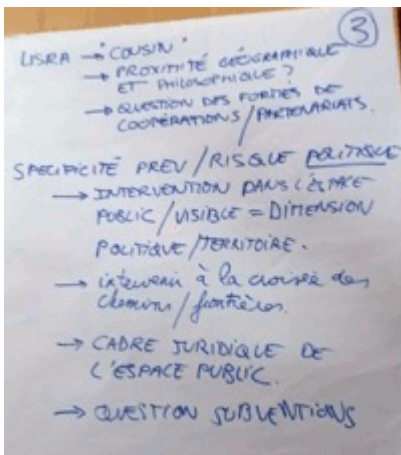 3
LISRA → "COUSIN"
→ PROXIMITÉ GÉOGRAPHIQUE
ET PHILOSOPHIQUE ?
→ QUESTION DES FORMES DE
COOPÉRATIONS / PARTENARIATS.
SPECIFICITÉ PREV / RISQUE POLITIQUE
→ INTERVENTION DANS L'ESPACE
PUBLIC / VISIBLE = DIMENSION
POLITIQUE / TERRITOIRE.
→ intervenir à la croisée des
chemins / frontières.
→ CADRE JURIDIQUE DE
L'ESPACE PUBLIC.
→ QUESTION SUBVENTIONS